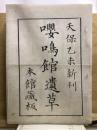 天保乙未新刊
嚶鳴館遺草
本館蔵板